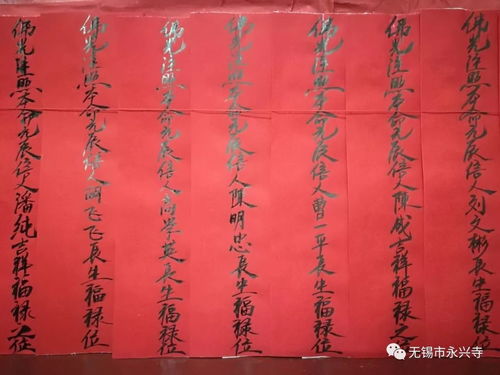 佛光注照本命元辰信人刘文彬長生福禄位
佛光注照本命元辰信人陳咸吉祥福禄之位
佛光注照本命元辰信人曹一平長生福禄位
佛光注照本命元辰信人陳明忠長生福禄位
佛光注照本命元辰信人高学英長生福禄位
佛光注照本命元辰信人闵飞飞長生福禄位
佛光注照本命元辰信人潘純吉祥福禄之位
无锡市永兴寺